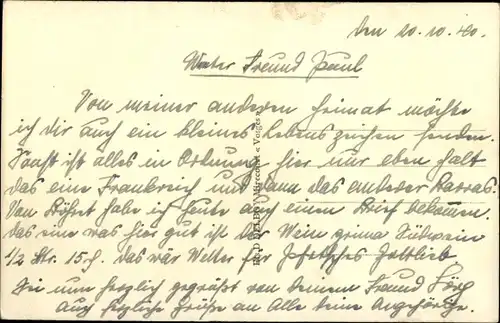 den 20.10.40.
Werter Freund Paul
Von meiner anderen Heimat möchte
ich dir auch ein kleines Lebenszeichen senden.
Sonst ist alles in Ordnung, hier nur eben halt
das eine Frankreich und dann das andere
Von habe ich heute auch einen Brief bekommen.
das eine was hier gut ist der Wein prima Südwein
1/2 Ltr. 15 das wär Wetter für
Sei nun herzlich gegrüßt von deinem Freund
Auch herzliche Grüße an Alle deine Angehörige.